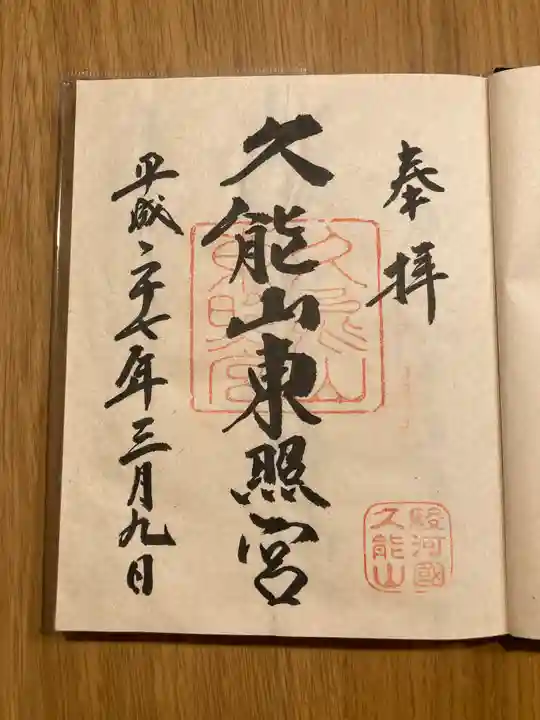 奉拝
久能山東照宮
平成二十七年三月九日
久能山
東照宮
駿河國
久能山